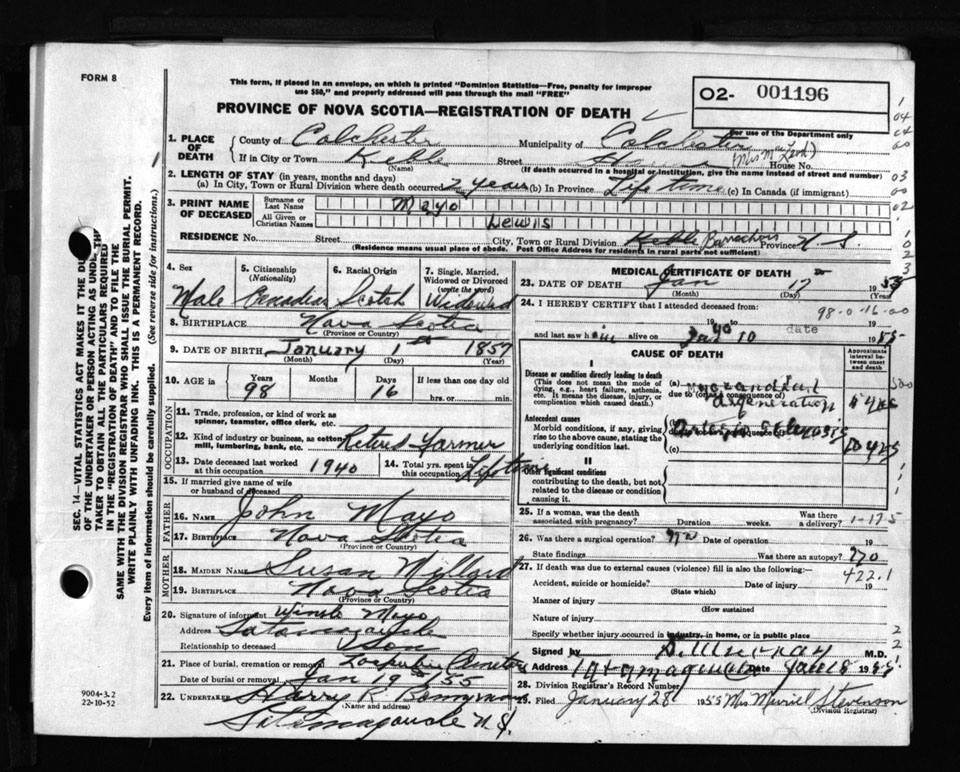 FORM 8
This form, if placed in an envelope, on which is printed "Dominion Statistics—Free, penalty for improper
use $50," and properly addressed will pass through the mail "FREE"
PROVINCE OF NOVA SCOTIA—REGISTRATION OF DEATH
02- 001196
For use of the Department only
1. PLACE OF DEATH
County of Colchester Municipality of Colchester
If in City or Town Street House No.
(Name) (If death occurred in a hospital or institution, give the name instead of street and number)
2. LENGTH OF STAY (in years, months and days)
(a) In City, Town or Rural Division where death occurred 2 years (b) In Province Life time (c) In Canada (if immigrant)
3. PRINT NAME OF DECEASED
Surname or Last Name Mayo
All Given or Christian Names Lewis
RESIDENCE No. Street City, Town or Rural Division Province N.S.
(Residence means usual place of abode. Post Office Address for residents in rural parts not sufficient)
4. Sex 5. Citizenship (Nationality) 6. Racial Origin 7. Single, Married, Widowed or Divorced (write the word)
Male Canadian Scotch Widowed
8. BIRTHPLACE Nova Scotia
(Province or Country)
9. DATE OF BIRTH January 1st 1857
(Month) (Day) (Year)
10. AGE in Years Months Days If less than one day old
98 16 hrs. or min.
11. Trade, profession, or kind of work as spinner, teamster, office clerk, etc.
12. Kind of industry or business, as cotton mill, lumbering, bank, etc. Retired Farmer
13. Date deceased last worked at this occupation 1940
14. Total yrs. spent in this occupation Lifetime
15. If married give name of wife or husband of deceased
FATHER
16. NAME John Mayo
17. BIRTHPLACE Nova Scotia
(Province or Country)
MOTHER
18. MAIDEN NAME Susan Millard
19. BIRTHPLACE Nova Scotia
(Province or Country)
20. Signature of informant Mayo
Address Tatamagouche
Relationship to deceased Son
21. Place of burial, cremation or removal Cemetery
Date of burial or removal Jan 19 1955
22. UNDERTAKER Harry R.
(Name and address)
Tatamagouche N.S.
MEDICAL CERTIFICATE OF DEATH
23. DATE OF DEATH Jan 17 1955
(Month) (Day) (Year)
24. I HEREBY CERTIFY that I attended deceased from:
98-0-16-00
19 to date 19
and last saw him alive on Jan 10 1955
CAUSE OF DEATH
Approximate interval between onset and death
I
Disease or condition directly leading to death
(This does not mean the mode of dying, e.g., heart failure, asthenia, etc. It means the disease, injury, or complication which caused death.)
(a) myocardial degeneration
due to (or as a consequence of)
Antecedent causes
Morbid conditions, if any, giving rise to the above cause, stating the underlying condition last.
(b) Arterio sclerosis
(c)
10 yrs
II
Other Significant conditions
contributing to the death, but not related to the disease or condition causing it.
25. If a woman, was the death associated with pregnancy? Duration weeks. Was there a delivery?
1-17-5
26. Was there a surgical operation? no Date of operation 19
State findings Was there an autopsy? no
27. If death was due to external causes (violence) fill in also the following:—
422.1
Accident, suicide or homicide? Date of injury 19
(State which)
Manner of injury
(How sustained
Nature of injury
Specify whether injury occurred in industry, in home, or in public place
Signed by M.D.
Address Tatamagouche Date Jan 18 1955
28. Division Registrar's Record Number
29. Filed January 28 1955 Mrs Stevenson
(Division Registrar)
SEC. 14—VITAL STATISTICS ACT MAKES IT THE DUTY
OF THE UNDERTAKER OR PERSON ACTING AS UNDERTAKER
TO OBTAIN ALL THE PARTICULARS REQUIRED
IN THE "REGISTRATION OF DEATH" AND TO FILE THE
SAME WITH THE DIVISION REGISTRAR WHO SHALL ISSUE THE BURIAL PERMIT.
WRITE PLAINLY WITH UNFADING INK. THIS IS A PERMANENT RECORD.
Every item of information should be carefully supplied. (See reverse side for instructions.)
9004-3.2
22-10-52